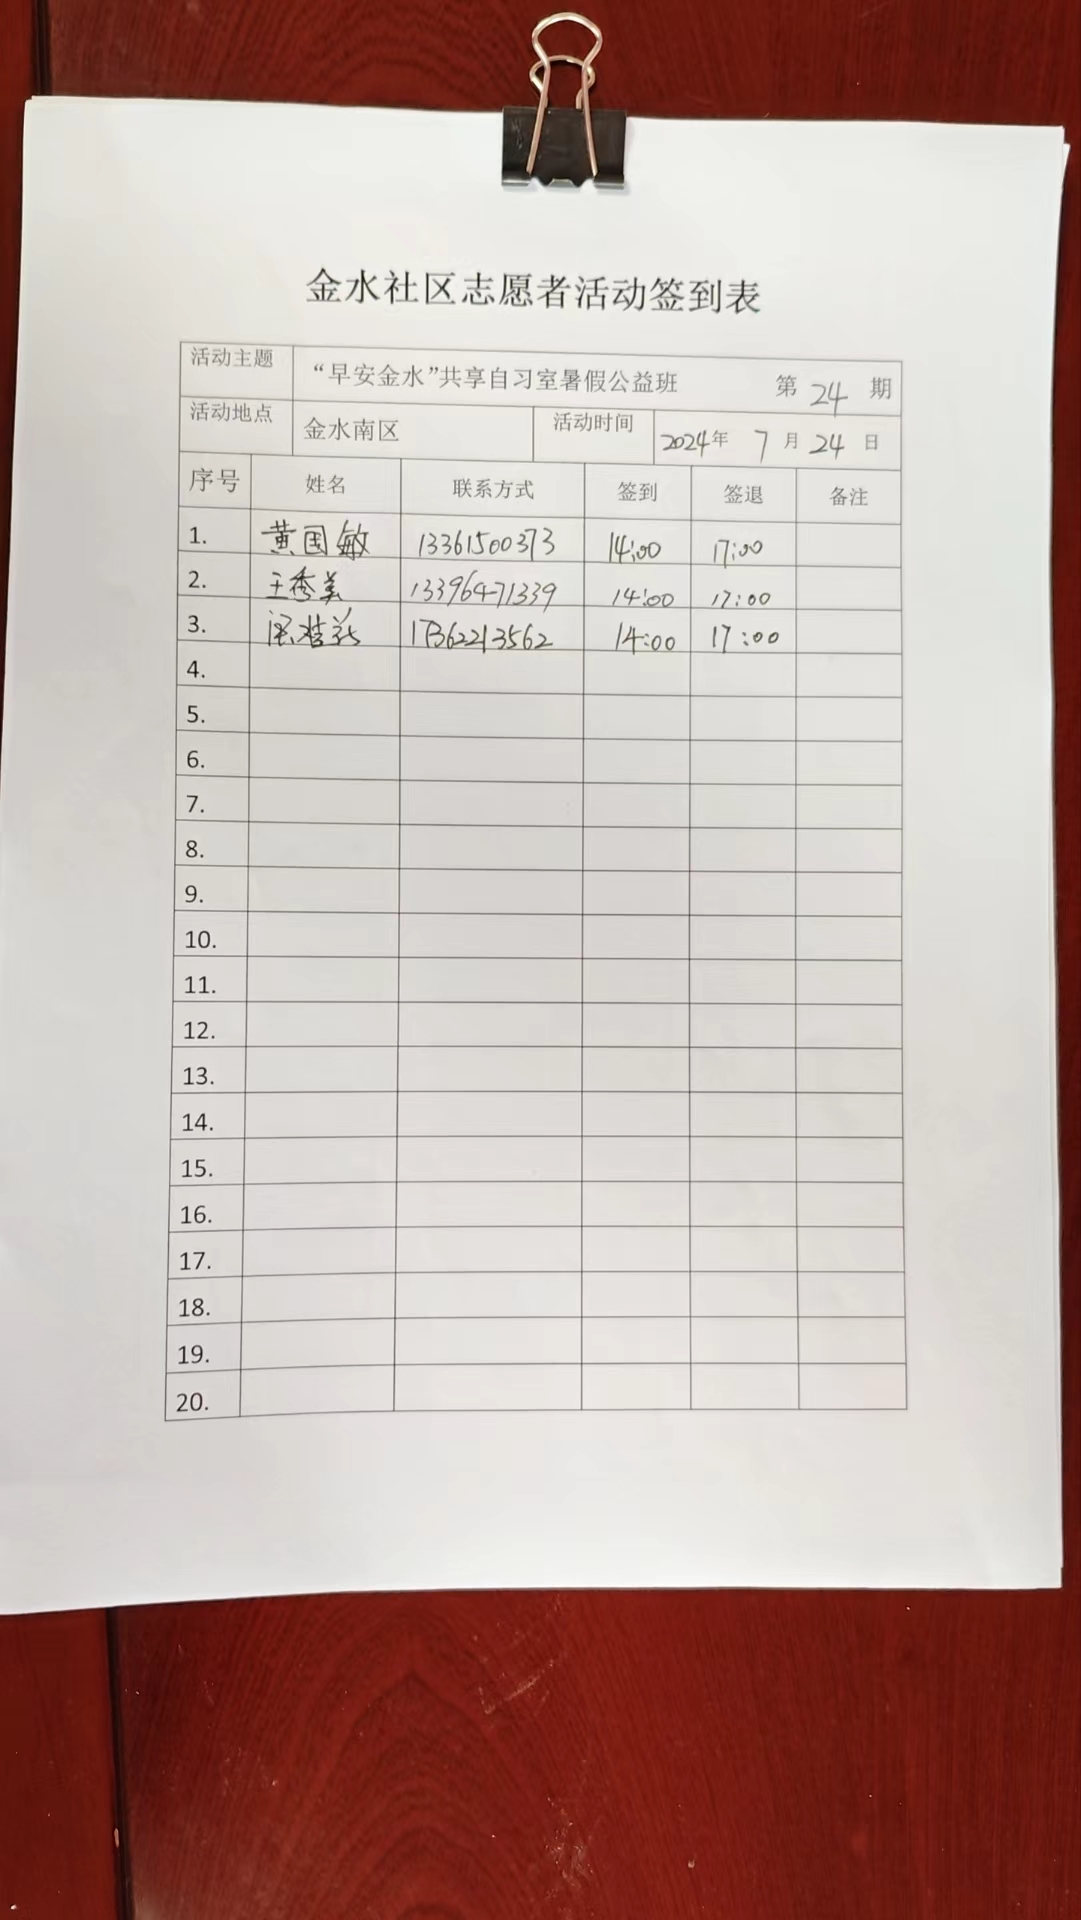 金水社区志愿者活动签到表
活动主题 “早安金水”共享自习室暑假公益班 第 24 期
活动地点 金水南区 活动时间 2024年 7 月 24 日
序号 姓名 联系方式 签到 签退 备注
1. 黄国敏 13361500373 14:00 17:00
2. 王秀美 13396471339 14:00 17:00
3. 17362213562 14:00 17:00
4.
5.
6.
7.
8.
9.
10.
11.
12.
13.
14.
15.
16.
17.
18.
19.
20.